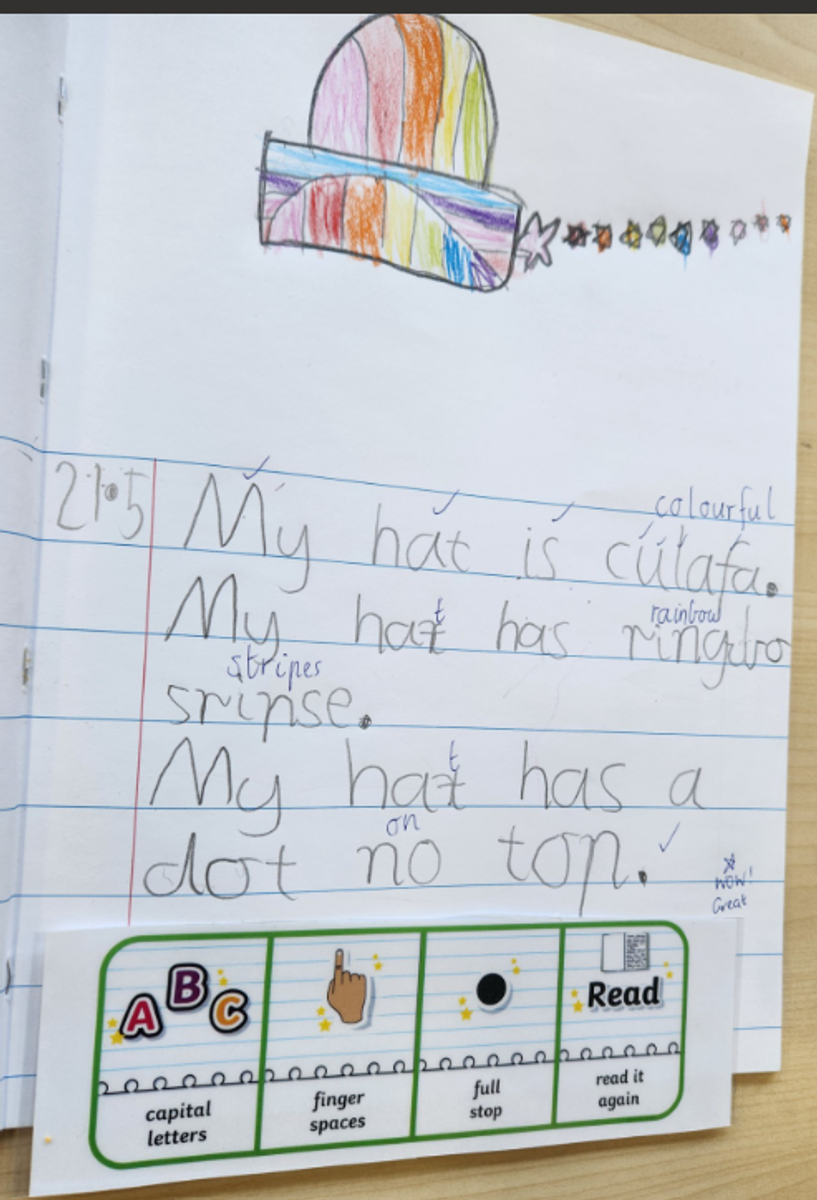 colourful
21.5 My hat is culafa.
t rainbow
My hat has ringdbo
stripes
sripse.
t
My hat has a
on
dot no top.
wow!
Great
A B C
Read
capital letters
finger spaces
full stop
read it again